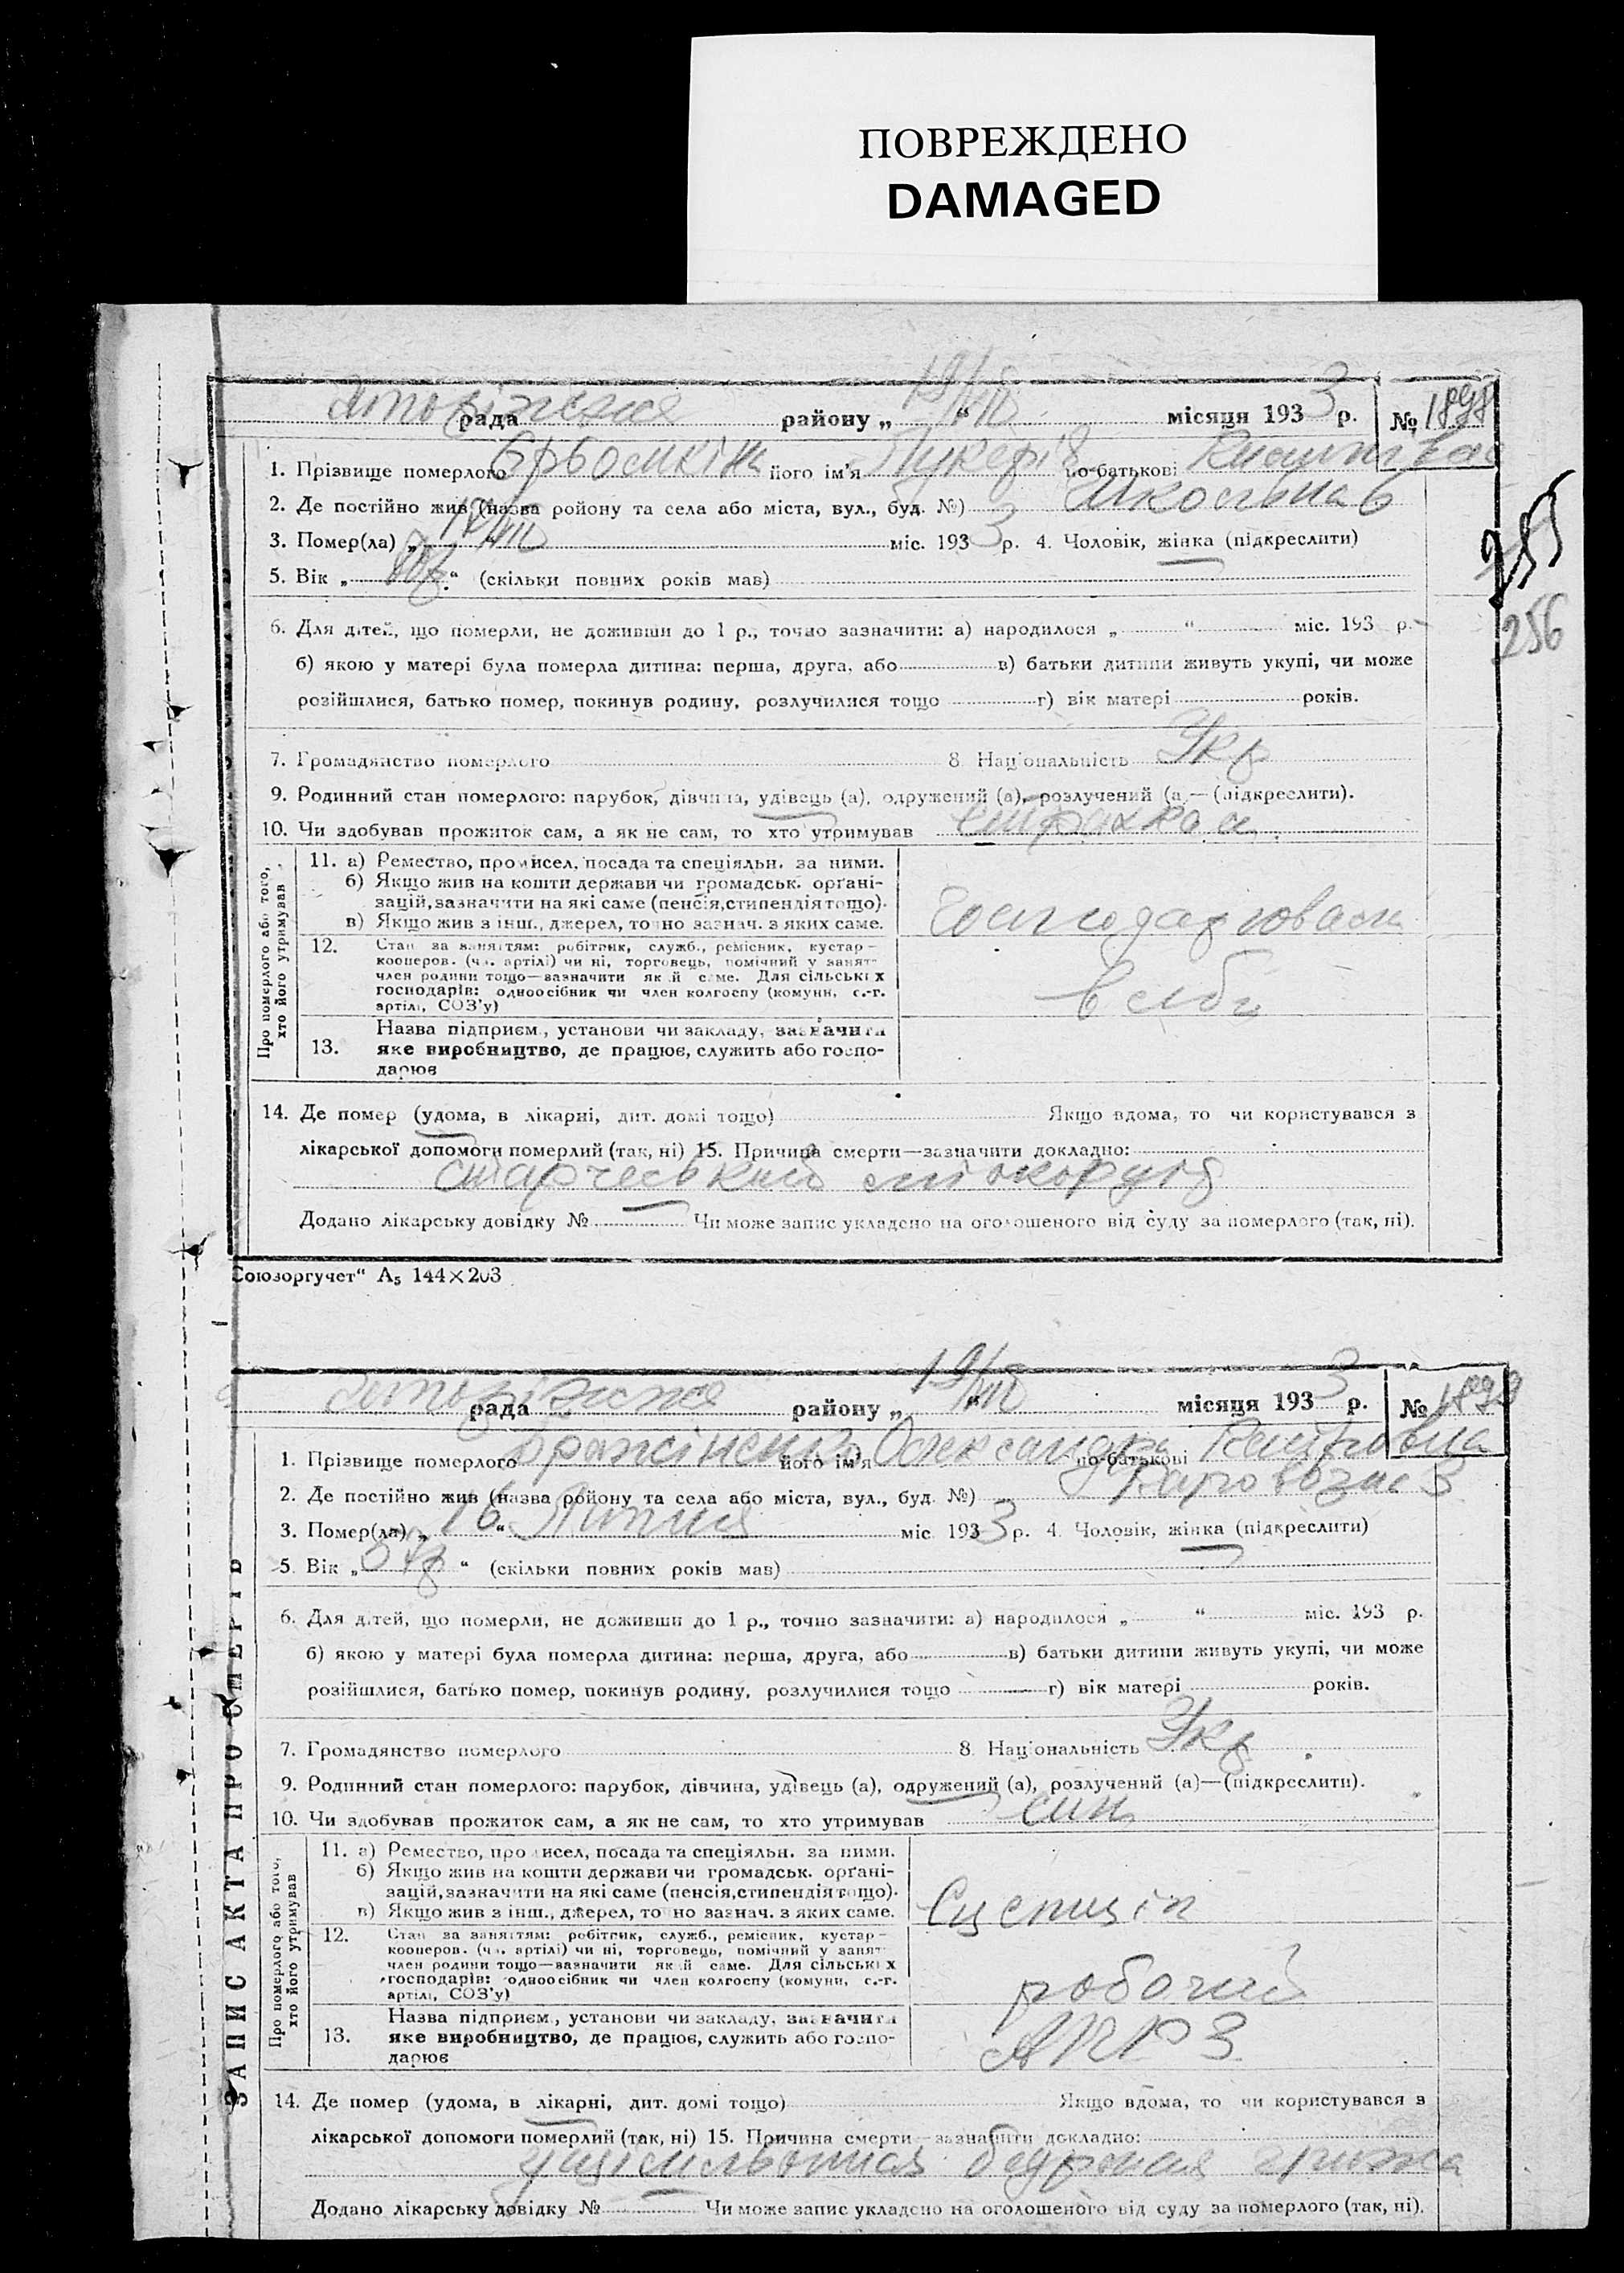 ПОВРЕЖДЕНО
DAMAGED
рада района „ 19/VIII “ місяця 1933 р. № 1898
1. Прізвище померлого його ім'я Лукерія по-батькові
2. Де постійно жив (назва ройону та села або міста, вул., буд. №) Школьна 6
3. Помер(ла) „ 17/VIII міс. 1933 р. 4. Чоловік, жінка (підкреслити)
5. Вік „ 80 р “ (скільки повних років мав)
255
256
6. Для дітей, що померли, не доживши до 1 р., точно зазначити: а) народилося „ “ міс. 193 р.
б) якою у матері була померла дитина: перша, друга, або в) батьки дитини живуть укупі, чи може
розійшлися, батько помер, покинув родину, розлучилися тощо г) вік матері років.
7. Громадянство померлого 8. Національність Укр
9. Родинний стан померлого: парубок, дівчина, удівець (а), одружений (а), розлучений (а — (підкреслити).
10. Чи здобував прожиток сам, а як не сам, то хто утримував
Про померлого або того, хто його утримував
11. а) Ремество, промисел, посада та спеціяльн. за ними.
б) Якщо жив на кошти держави чи громадськ. орґані-
зацій, зазначити на які саме (пенсія, стипендія тощо).
в) Якщо жив з інш., джерел, точно зазнач. з яких саме.
12. Стан за заняттям: робітник, служб., ремісник, кустар —
кооперов. (чл. артілі) чи ні, торговець, помічний у занят-
член родини тощо—зазначити який саме. Для сільських
господарів: одноосібник чи член колгоспу (комуни, с.-г.
артілі, СОЗ'у)
Назва підприєм., установи чи закладу, зазначити
13. яке виробництво, де працює, служить або госпо-
дарює
14. Де помер (удома, в лікарні, дит. домі тощо) Якщо вдома, то чи користувався з
лікарської допомоги померлий (так, ні) 15. Причина смерти—зазначити докладно:
старческий
Додано лікарську довідку № Чи може запис укладено на оголошеного від суду за померлого (так, ні).
Союзоргучет“ А5 144×203
рада району „ 19/VIII “ місяця 1933 р. № 1899
1. Прізвище померлого його ім'я Олександра по-батькові
2. Де постійно жив (назва ройону та села або міста, вул., буд. №) Паровозна 3
3. Помер(ла) „ 16 “ Липня міс. 1933 р. 4. Чоловік, жінка (підкреслити)
5. Вік „ “ (скільки повних років мав)
6. Для дітей, що померли, не доживши до 1 р., точно зазначити: а) народилося „ “ міс. 193 р.
б) якою у матері була померла дитина: перша, друга, або в) батьки дитини живуть укупі, чи може
розійшлися, батько помер, покинув родину, розлучилися тощо г) вік матері років.
7. Громадянство померлого 8. Національність Укр
9. Родинний стан померлого: парубок, дівчина, удівець (а), одружений (а), розлучений (а)—(підкреслити).
10. Чи здобував прожиток сам, а як не сам, то хто утримував син
ЗАПИС АКТА ПРО СМЕРТЬ
Про померлого або того, хто його утримував
11. а) Ремество, промисел, посада та спеціяльн. за ними.
б) Якщо жив на кошти держави чи громадськ. орґані-
зацій, зазначити на які саме (пенсія, стипендія тощо).
в) Якщо жив з інш., джерел, точно зазнач. з яких саме.
Сцепщік
12. Стан за заняттям: робітник, служб., ремісник, кустар —
кооперов. (чл. артілі) чи ні, торговець, помічний у занят-
член родини тощо—зазначити який саме. Для сільських
господарів: одноосібник чи член колгоспу (комуни, с.-г.
артілі, СОЗ'у)
робочий
Назва підприєм., установи чи закладу, зазначити
13. яке виробництво, де працює, служить або госпо-
дарює
14. Де помер (удома, в лікарні, дит. домі тощо) Якщо вдома, то чи користувався з
лікарської допомоги померлий (так, ні) 15. Причина смерти—зазначити докладно:
грижа
Додано лікарську довідку № Чи може запис укладено на оголошеного від суду за померлого (так, ні).